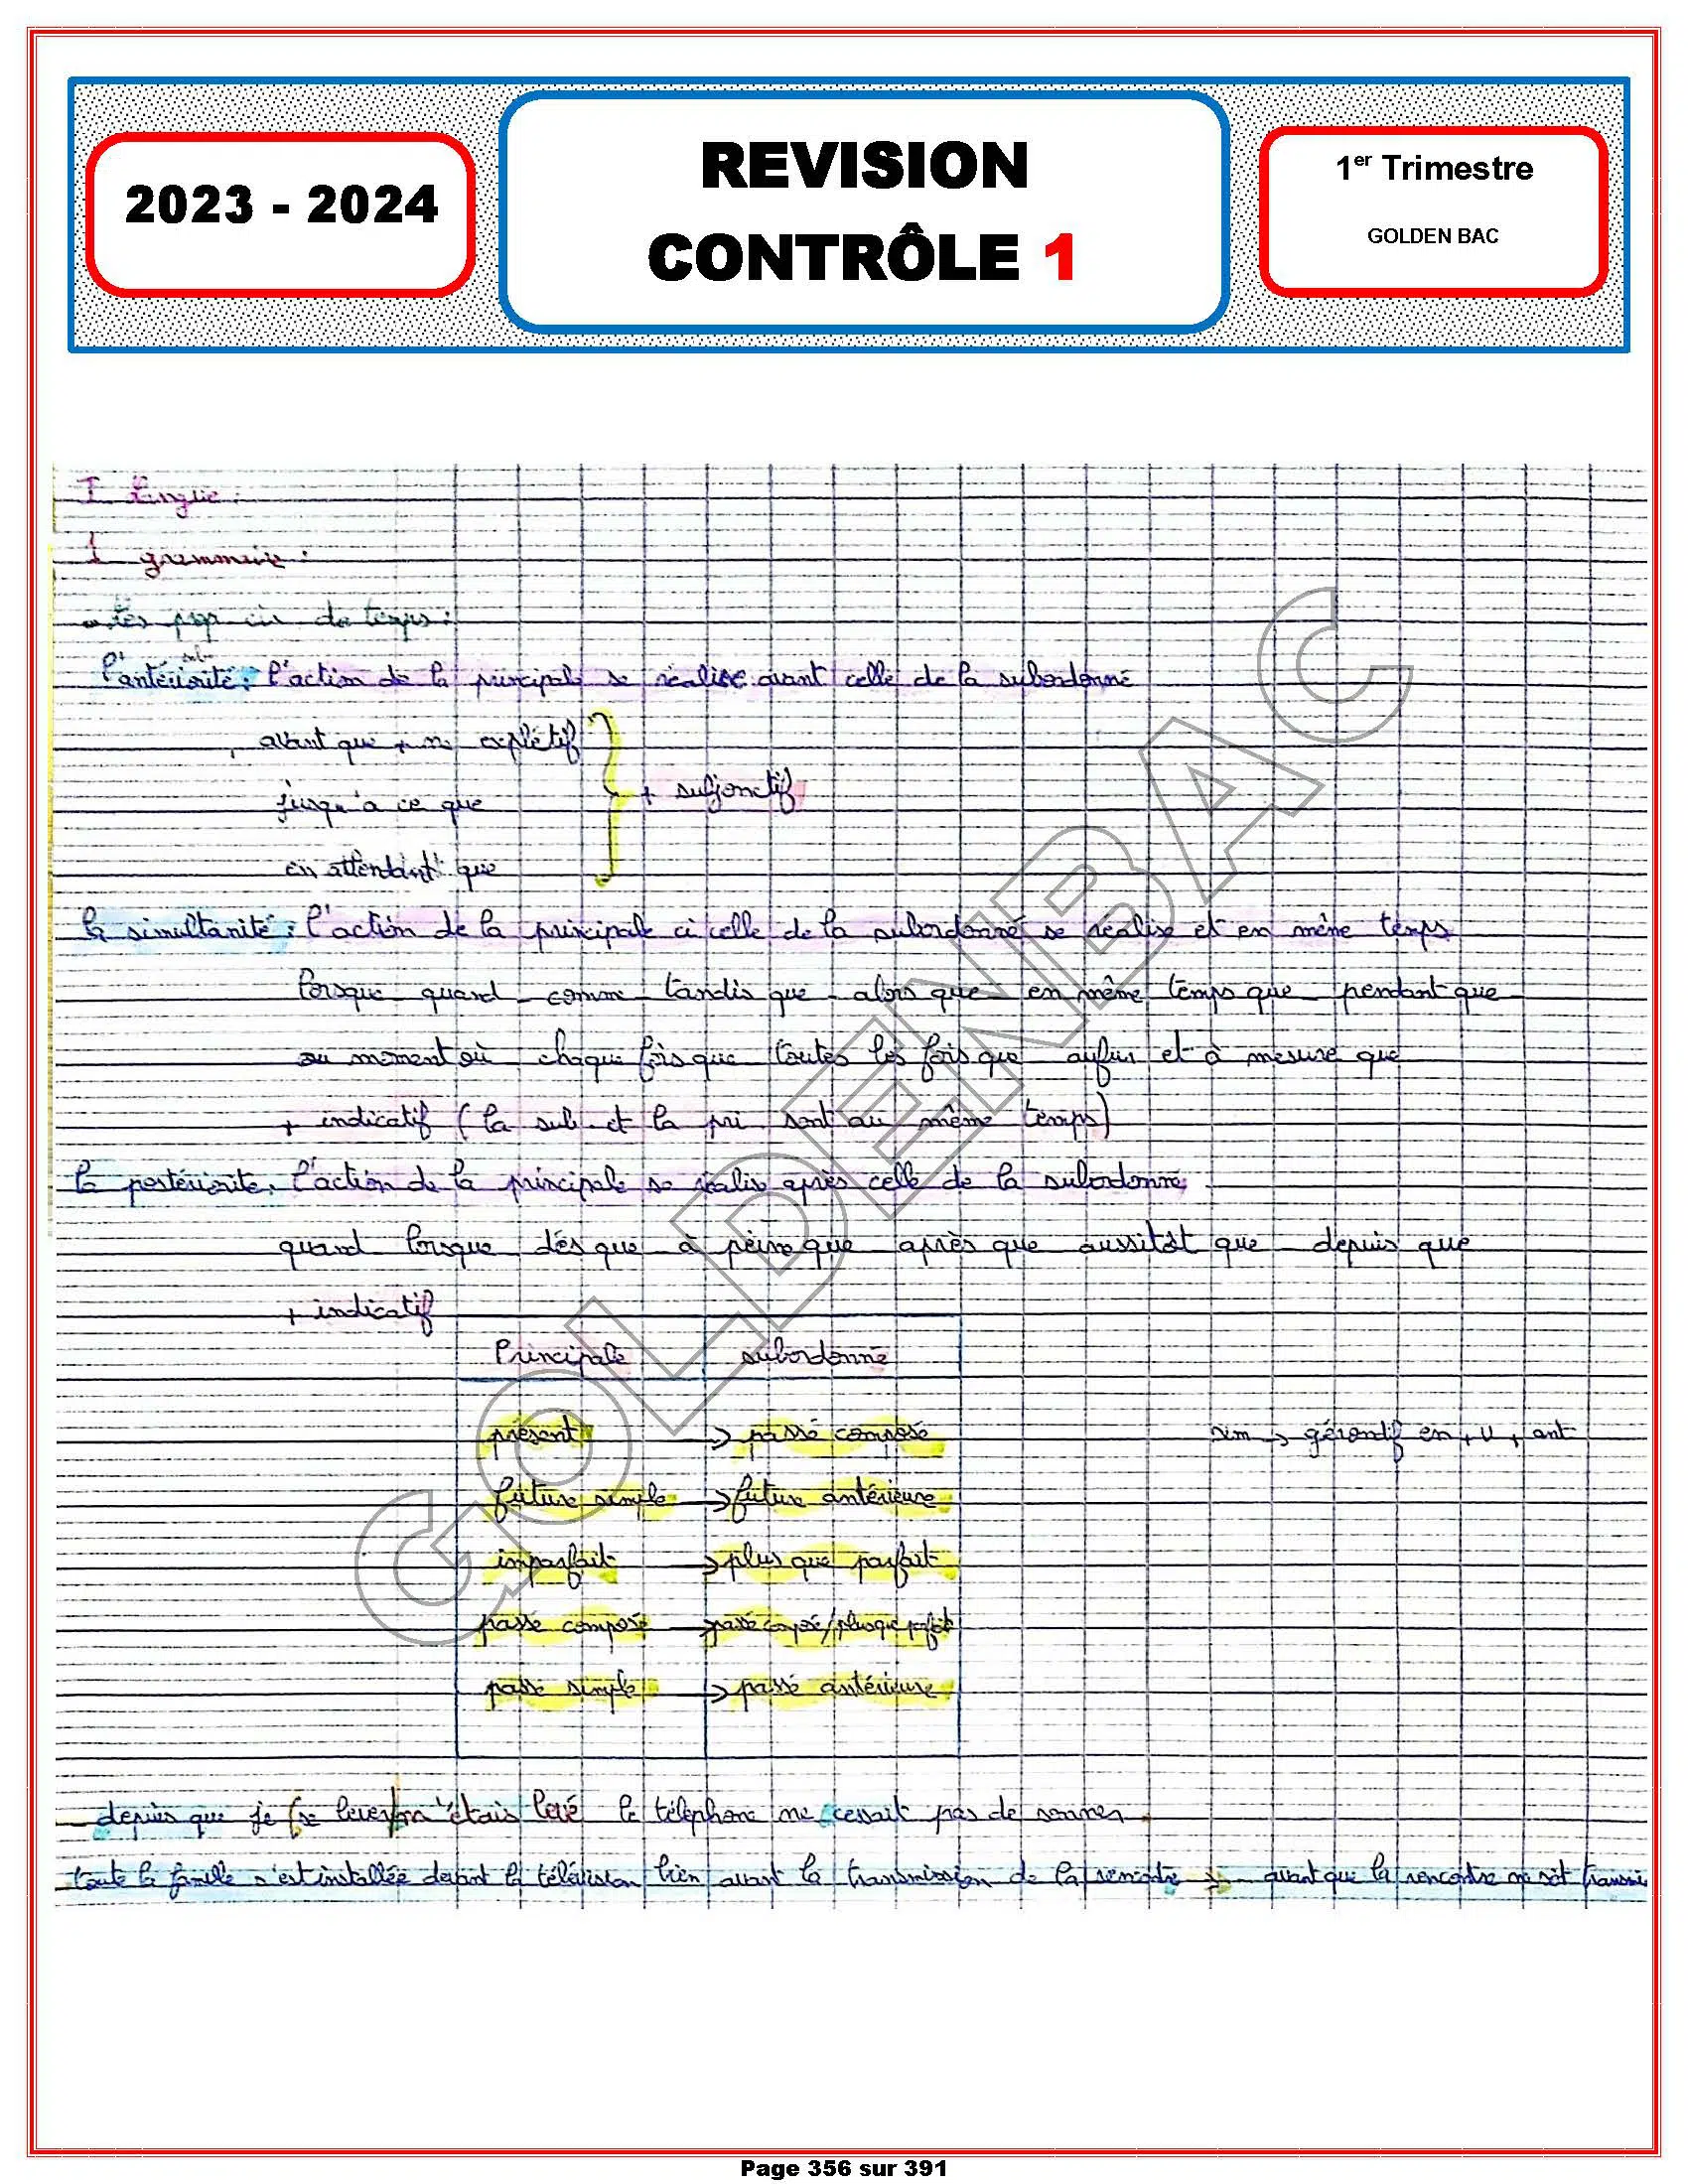 2023 - 2024
REVISION
CONTRÔLE 1
1er Trimestre
GOLDEN BAC
I langue :
1 grammaire :
les prop cir de temps :
sub
l'antériorité : l'action de la principale se réalise avant celle de la subordonné
avant que + ne explétif
jusqu'à ce que
+ subjonctif
en attendant que
la simultanité : l'action de la principale ci celle de la subordonné se réalise et en même temps
lorsque quand - comme - tandis que - alors que - en même temps que - pendant que -
au moment où - chaque fois que toutes les fois que - aufur et à mesure que
+ indicatif ( la sub. et la pri. sont au même temps)
la postériorite : l'action de la principale se réalise après celle de la subordonné.
quand lorsque - dès que - à peine que - après que - aussitôt que - depuis que
+ indicatif
Principale subordonné
présent -> passé composé
sim -> gérondif en + V + ant
future simple -> future antérieure
imparfait -> plus que parfait
passé composé -> passé composé/plusque parfait
passé simple -> passé antérieure
depuis que je (se lever) m'étais levé le téléphone ne cessait pas de sonner.
toute la famille s'est installée devant la télévision bien avant la transmission de la rencontre -> avant que la rencontre ne soit transmi
GOLDENBAC
Page 356 sur 391